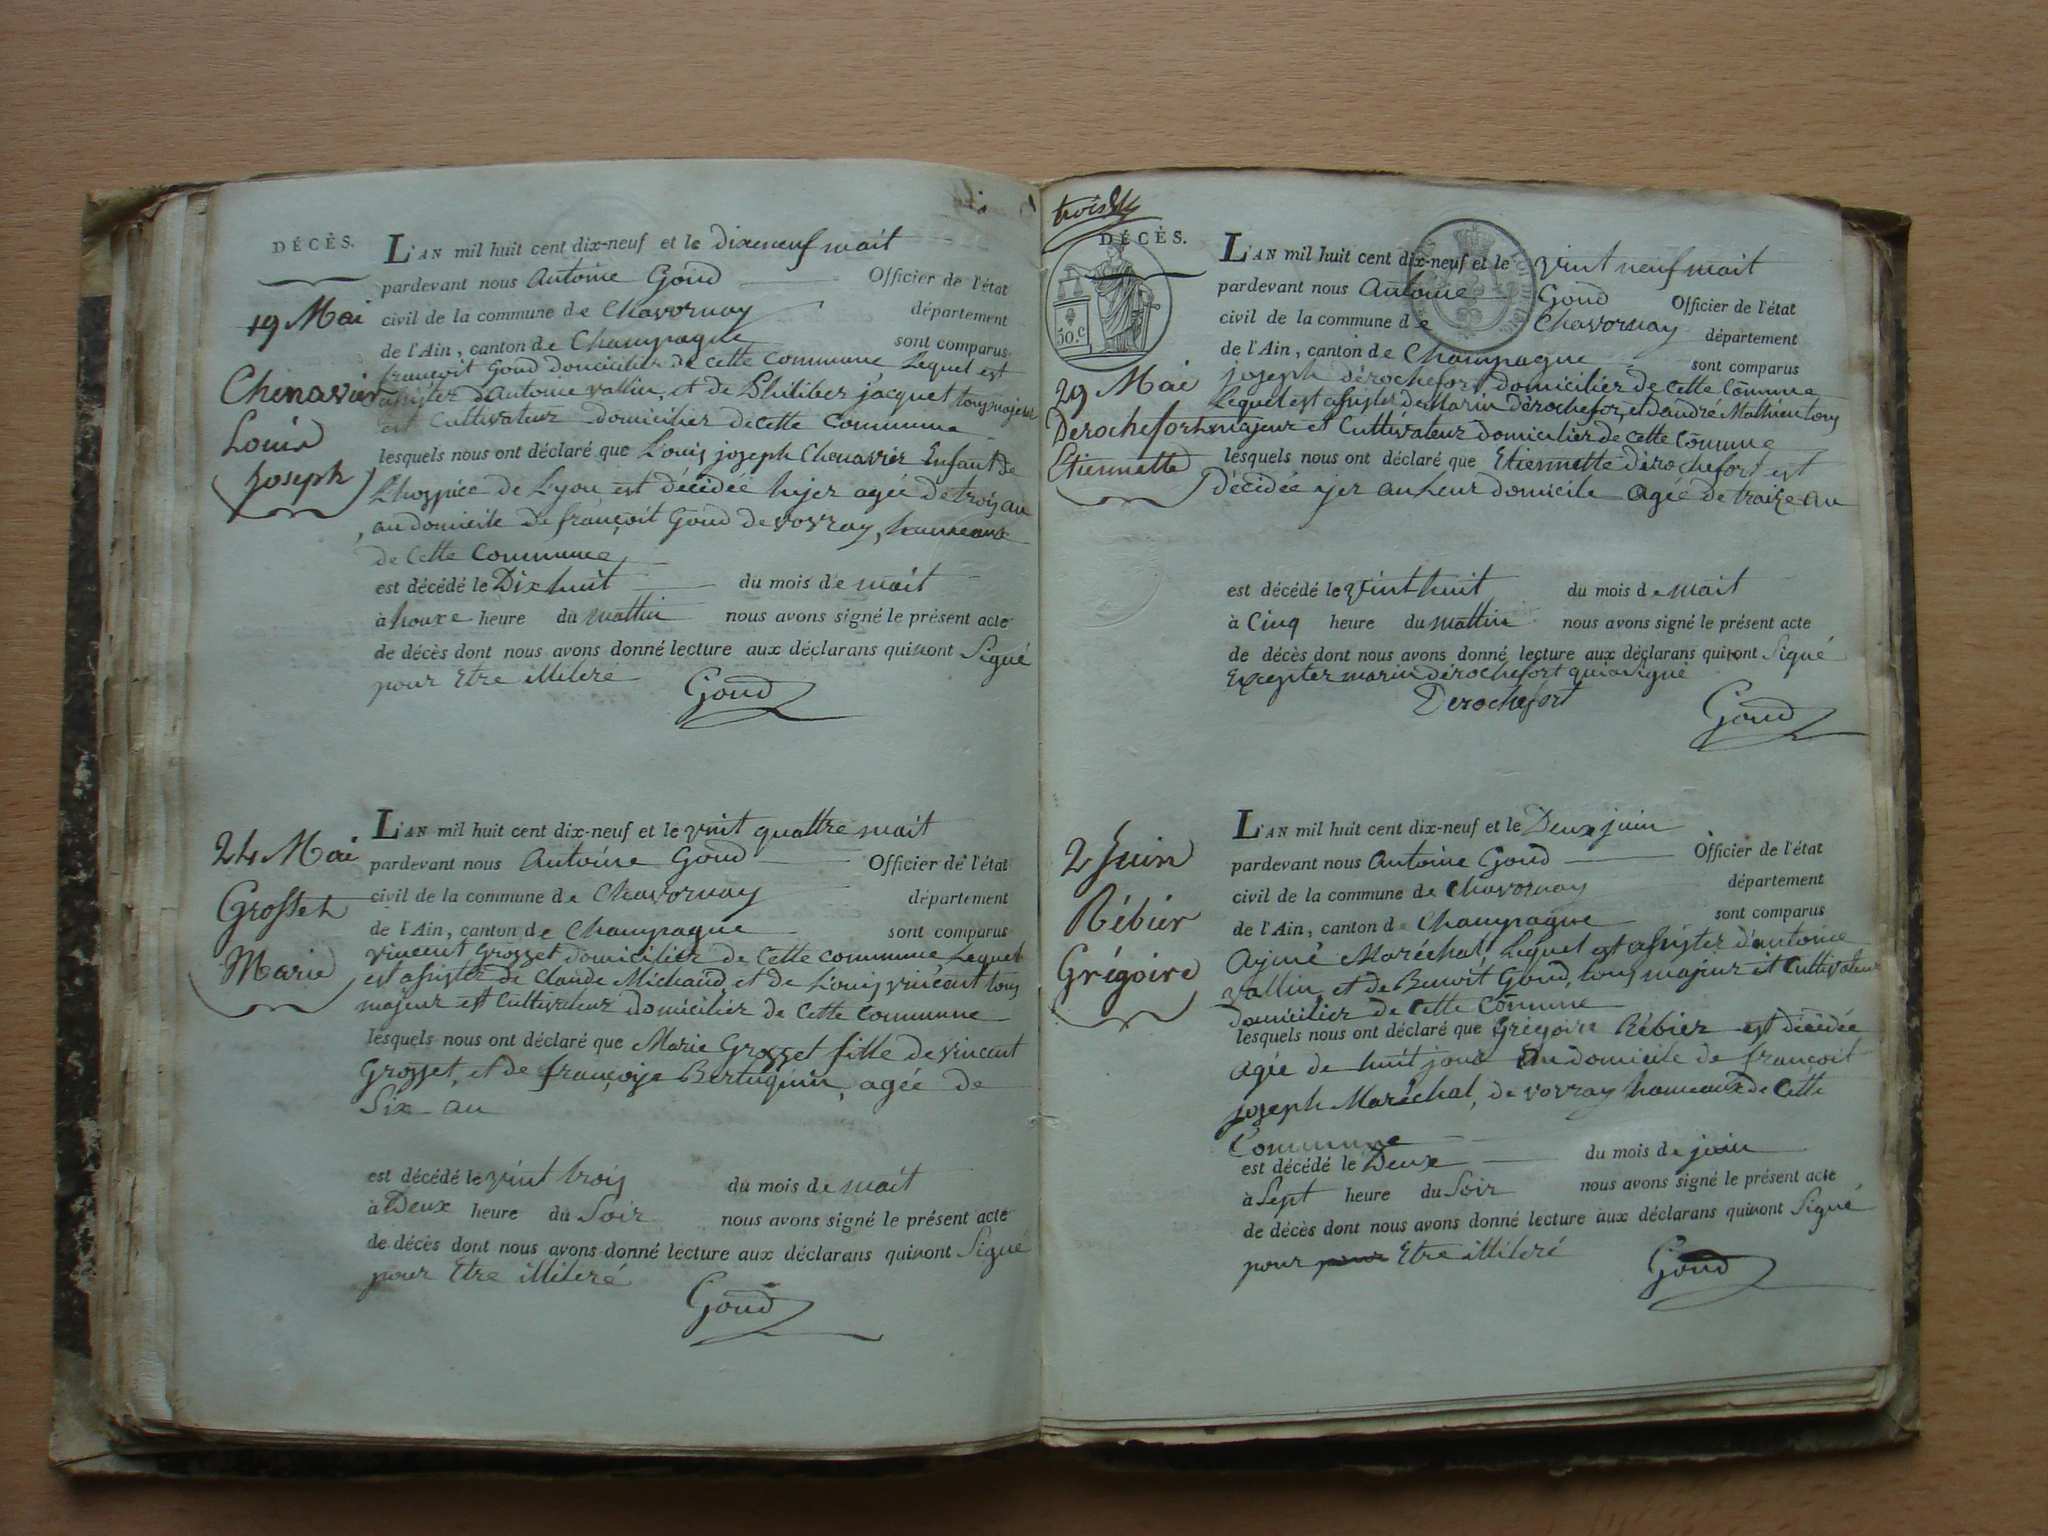 DÉCÈS.
19 Mai
Chenavier
Louis
Joseph
L'AN mil huit cent dix-neuf et le dixeneuf mait
pardevant nous Antoine Goud Officier de l'état
civil de la commune de Chavornay département
de l'Ain, canton de Champagne sont comparus
françoit Goud domicilier de cette Commune Lequel est
assister d'Antoine vallin, et de Philiber jacquet tous majeur
est Cultivateur domicilier de cette Commune
lesquels nous ont déclaré que Louis joseph Chenavier Enfant de
Lhospice de Lyon est décidée hyer agée de trois an
au domicile de françoit Goud de vovray, hameaux
de Cette Commune
est décédé le Dix huit du mois de mait
à honze heure du mattin nous avons signé le présent acte
de décès dont nous avons donné lecture aux déclarans qui n'ont Signé
pour Etre illiteré
Goud
24 Mai
Grosset
Marie
L'AN mil huit cent dix-neuf et le vint quattre mait
pardevant nous Antoine Goud Officier de l'état
civil de la commune de Chavornay département
de l'Ain, canton de Champagne sont comparus
vincent Grosset domicilier de Cette commune Lequel
est assister de Claude Michaud et de Louis vincent tous
majeur est Cultivateur domicilier de Cette Commune
lesquels nous ont déclaré que Marie Grosset fille de vincent
Grosset, et de françoise Bertuguin, agée de
Six an
est décédé le vint trois du mois de mait
à Deux heure du Soir nous avons signé le présent acte
de décès dont nous avons donné lecture aux déclarans qui n'ont Signé
pour Etre illiteré
Goud
DÉCÈS.
50.c
29 Mai
Derochefort
Etiennette
L'AN mil huit cent dix-neuf et le vint neuf mait
pardevant nous Antoine Goud Officier de l'état
civil de la commune de Chavornay département
de l'Ain, canton de Champagne sont comparus
joseph dérochefort domicilier de cette Cômmune
Lequel est assister de Marin dérochefor, et d'andré Mathieu tous
majeur et Cultivateur domicilier de cette Cômmune
lesquels nous ont déclaré que Etiennette dérochefort est
décidée yer an Leur domicile agée de traize an
est décédé le vint huit du mois de mait
à Cinq heure du mattin nous avons signé le présent acte
de décès dont nous avons donné lecture aux déclarans qui n'ont Signé
Excepter marin dérochefort qui a signé
Derochefort
Goud
2 Juin
Rébier
Grégoire
L'AN mil huit cent dix-neuf et le Deux juin
pardevant nous Antoine Goud Officier de l'état
civil de la commune de Chavornay département
de l'Ain, canton de Champagne sont comparus
Aymé Maréchal, Lequel est assister d'antoine
vallin, et de Benoit Goud, tous majeur et Cultivateur
domicilier de Cette Cômmune
lesquels nous ont déclaré que Grégoire Rébier est décidée
agée de huit jour au domicile de françoit
joseph Maréchal, de vovray hameaux de Cette
Commune
est décédé le Deux du mois de juin
à Sept heure du Soir nous avons signé le présent acte
de décès dont nous avons donné lecture aux déclarans qui n'ont Signé
pour pour Etre illiteré
Goud